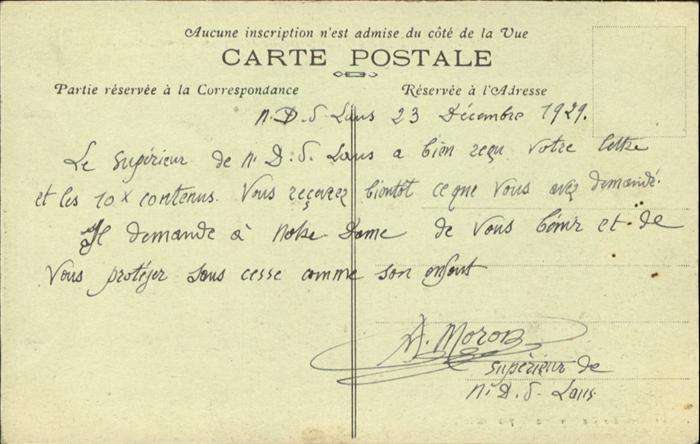 Aucune inscription n'est admise du côté de la Vue
CARTE POSTALE
Partie réservée à la Correspondance
Réservée à l'Adresse
N. D. S. Laus 23 Décembre 1929.
Le supérieur de N. D. S. Laus a bien reçu votre lettre
et les 10 x contenus. Vous recevrez bientôt ce que vous avez demandé.
Il demande à Notre-Dame de vous bénir et de
vous protéger sans cesse comme son enfant
A. Moron
supérieur de
N. D. S. Laus